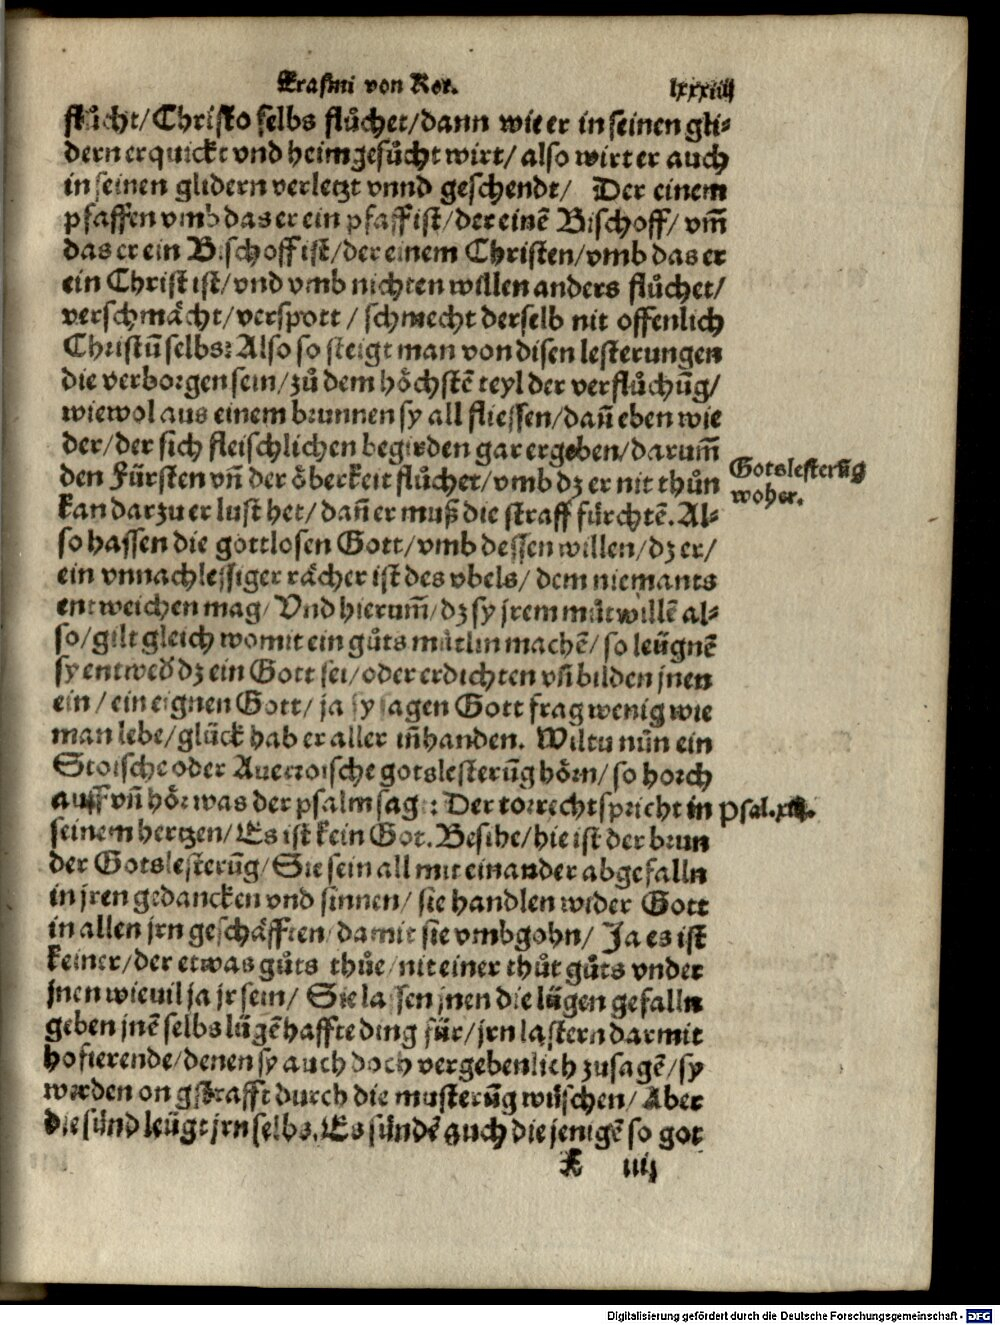 Erasmi von Rot. lxxxiiij
flůcht/Christo selbs flůchet/dann wie er in seinen gli⸗
dern erquickt vnd heimgesůcht wirt/ also wirt er auch
in seinen glidern verletzt vnnd geschendt/ Der einem
pfaffen vmb das er ein pfaff ist/der einẽ Bischoff/ vm̃
das er ein Bischoff ist/der einem Christen/vmb das er
ein Christ ist/vnd vmb nichten willen anders flůchet/
verschmåcht/verspott / schmecht derselb nit offenlich
Christũ selbs: Also so steigt man von disen lesterungen
die verborgen sein/zů dem hôchstẽ teyl der verflůchũg/
wiewol aus einem brunnen sy all fliessen/dañ eben wie
der/der sich fleischlichen begirden gar ergeben/darum̃
den Fürsten vñ der ôberkeit flůchet/vmb dz er nit thůn
kan darzu er lust het/ dañ er muß die straff fürchtẽ. Al⸗
so hassen die gottlosen Gott/vmb dessen willen/dz er/
ein vnnachlessiger råcher ist des vbels/ dem niemants
entweichen mag/ Vnd hierum̃/dz sy jrem můtwillẽ al⸗
so/gilt gleich womit ein gůts můtlin machẽ/ so leügnẽ
sy entwed̕ dz ein Gott sei/oder erdichten vñ bilden jnen
ein / ein eignen Gott/ ja sy sagen Gott frag wenig wie
man lebe/glück hab er aller iñhanden. Wiltu nůn ein
Stoische oder Auerroische gotslesterũg hôrn/ so horch
auff vñ hôr was der psalm sag : Der tor rechtspricht in
seinem hertzen/ Es ist kein Got. Besihe/hie ist der brun
der Gotslesterũg/ Sie sein all mit einander abgefalln
in jren gedancken vnd sinnen/ sie handlen wider Gott
in allen jrn geschåfften damit sie vmbgohn/ Ja es ist
keiner/der etwas gůts thůe/nit einer thůt gůts vnder
jnen wieuil ja jr sein/ Sie lassen jnen die lügen gefalln
geben jnẽ selbs lügẽhaffte ding für/jrn lastern darmit
hofierende/denen sy auch doch vergebenlich zusagẽ/sy
werden on gstrafft durch die musterũg wüschen/ Aber
die sünd leügt jrn selbs. Es sündẽ auch die jenigẽ so got
Gotslesterũg
woher.
Psal.xiij.
k iiij
Digitalisierung gefördert durch die Deutsche Forschungsgemeinschaft - DFG